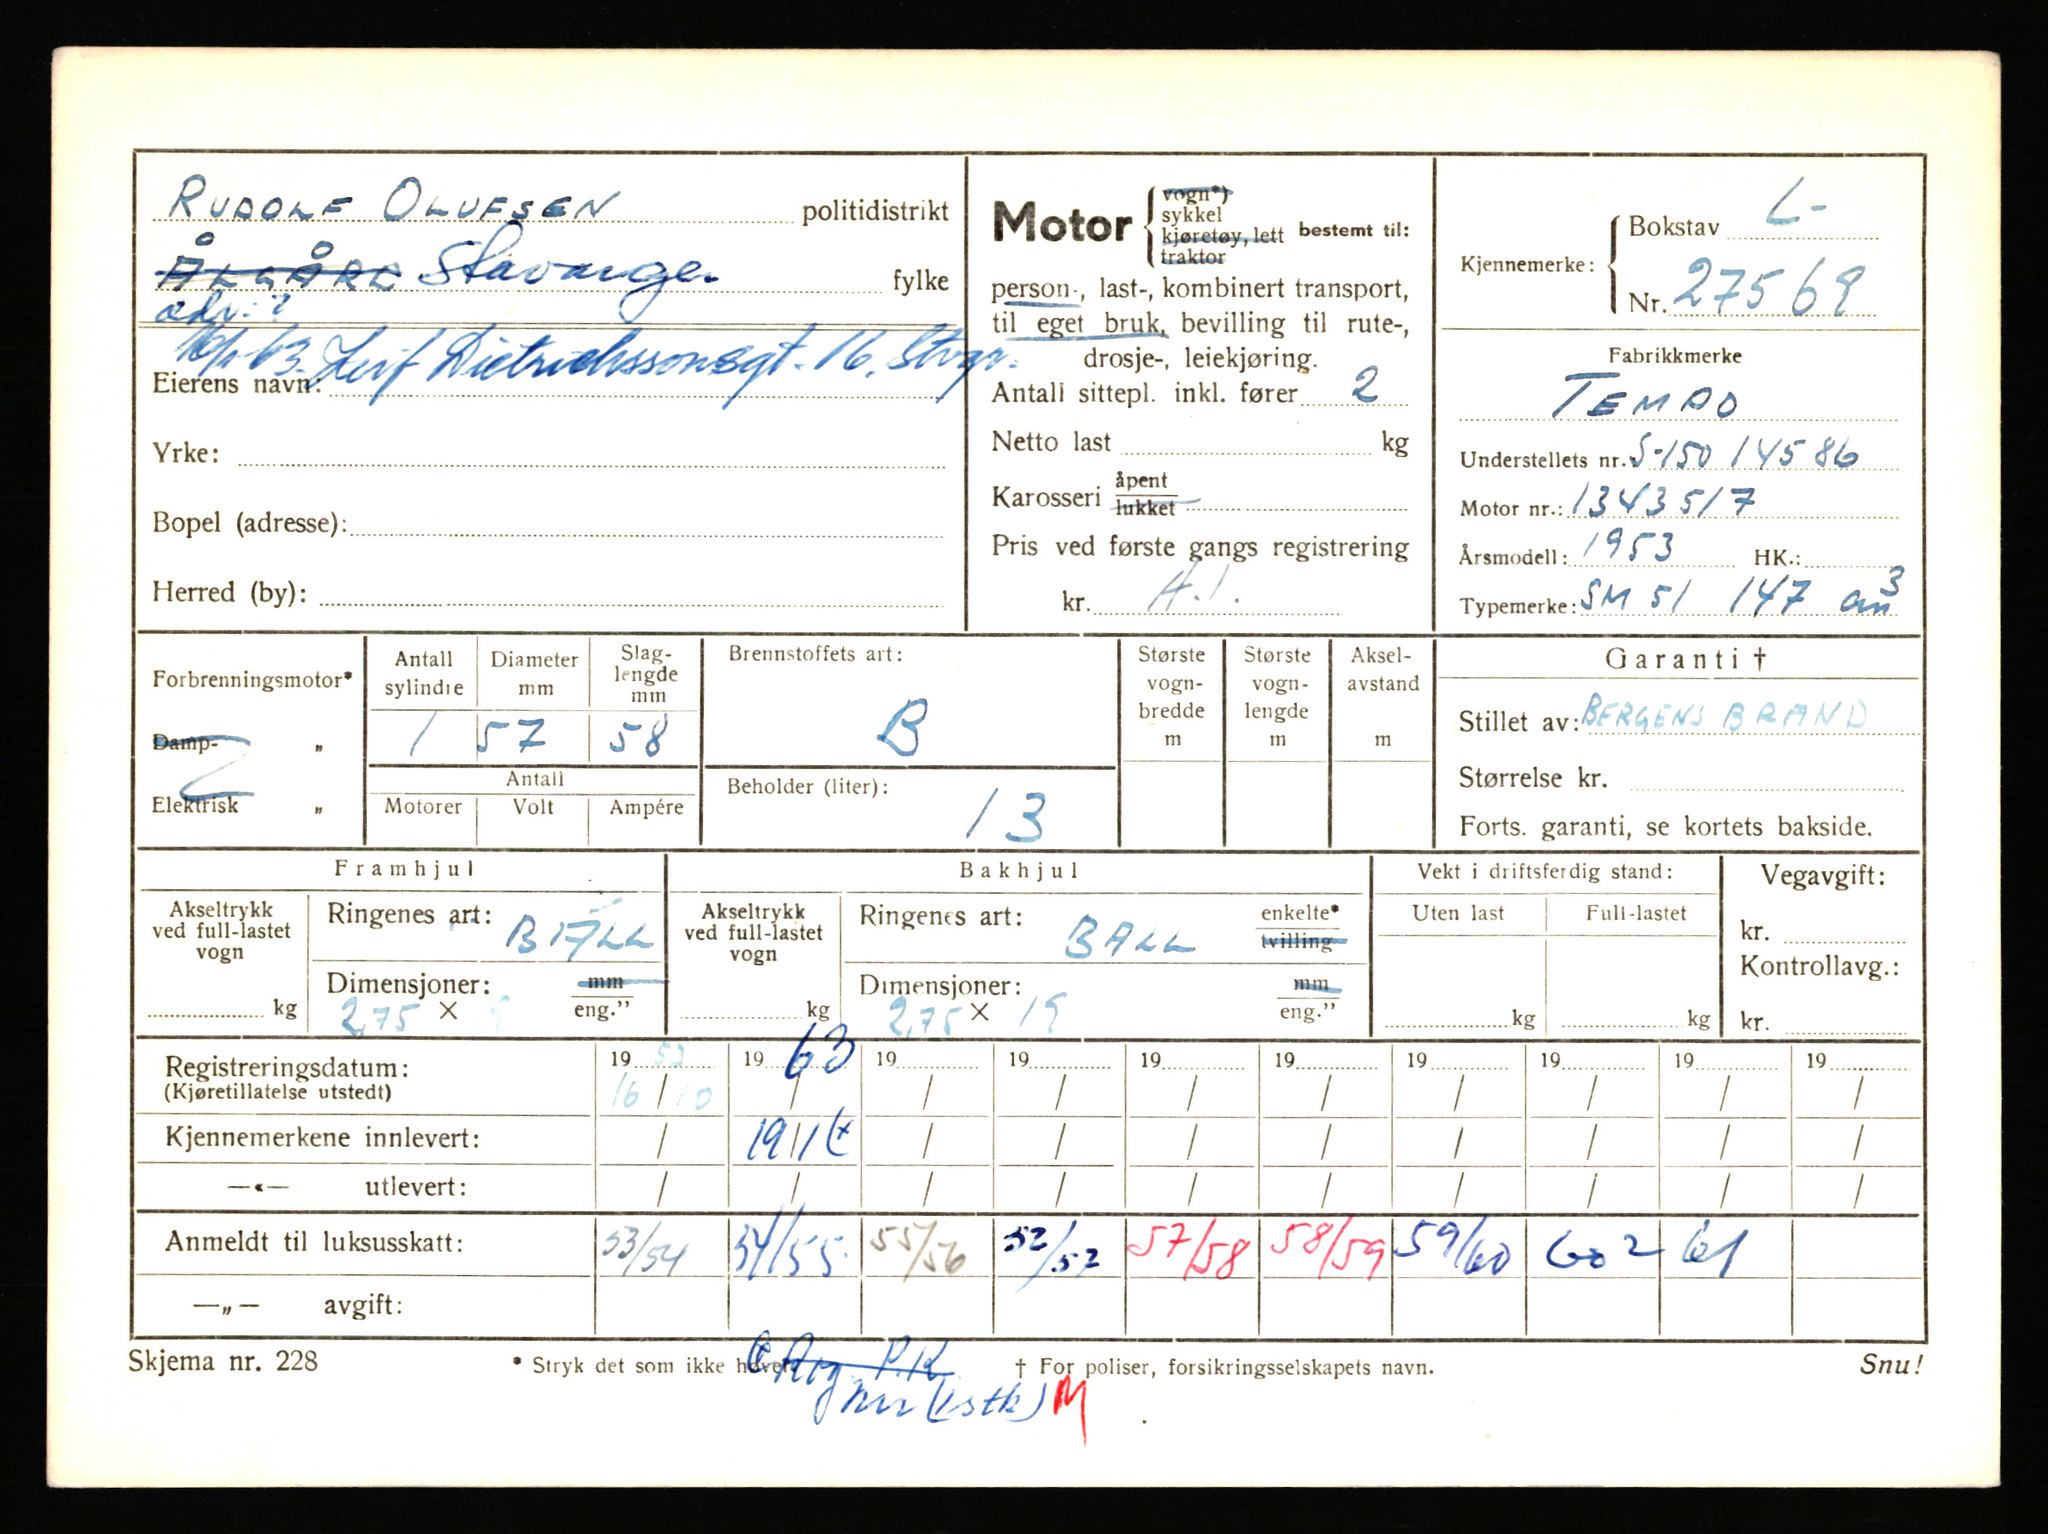 RUDOLF OLUFSEN politidistrikt
ÅLGÅRD Stavanger fylke
adr: ?
63. Leif Dietrichssonsgt. 16. Stvgr.
Eierens navn:
Yrke:
Bopel (adresse):
Herred (by):
Motor { vogn*) sykkel kjøretøy, lett traktor bestemt til:
person-, last-, kombinert transport,
til eget bruk, bevilling til rute-,
drosje-, leiekjøring.
Antall sittepl. inkl. fører 2
Netto last kg
Karosseri åpent lukket
Pris ved første gangs registrering
kr. A.I.
Kjennemerke: { Bokstav L-
Nr. 27569
Fabrikkmerke
TEMPO
Understellets nr. S-150 14586
Motor nr.: 1343517
Årsmodell: 1953 HK.:
Typemerke: SM 51 147 cm3
Forbrenningsmotor*
Damp- „
Elektrisk „
Antall sylindre Diameter mm Slag-lengde mm
1 57 58
Antall
Motorer Volt Ampére
Brennstoffets art:
B
Beholder (liter):
13
Største vogn-bredde m
Største vogn-lengde m
Aksel-avstand m
Garanti †
Stillet av: BERGENS BRAND
Størrelse kr.
Forts. garanti, se kortets bakside.
Framhjul
Akseltrykk ved full-lastet vogn kg
Ringenes art: BALL
Dimensjoner: mm eng.”
2,75 × 9
Bakhjul
Akseltrykk ved full-lastet vogn kg
Ringenes art: BALL enkelte* tvilling
Dimensjoner: mm eng.”
2,75 × 19
Vekt i driftsferdig stand:
Uten last Full-lastet
kg kg
Vegavgift:
kr.
Kontrollavg.:
kr.
Registreringsdatum: 19 53 19 63 19 19 19 19 19 19 19 19
(Kjøretillatelse utstedt) 16 / 10 / / / / / / / / /
Kjennemerkene innlevert: / 19/1 / / / / / / / /
—«— utlevert: / / / / / / / / / /
Anmeldt til luksusskatt: 53/54 54/55 55/56 52/52 57/58 58/59 59/60 60 2 61
—„— avgift:
Skjema nr. 228 * Stryk det som ikke høver † For poliser, forsikringsselskapets navn. Snu!
(1 stk) M